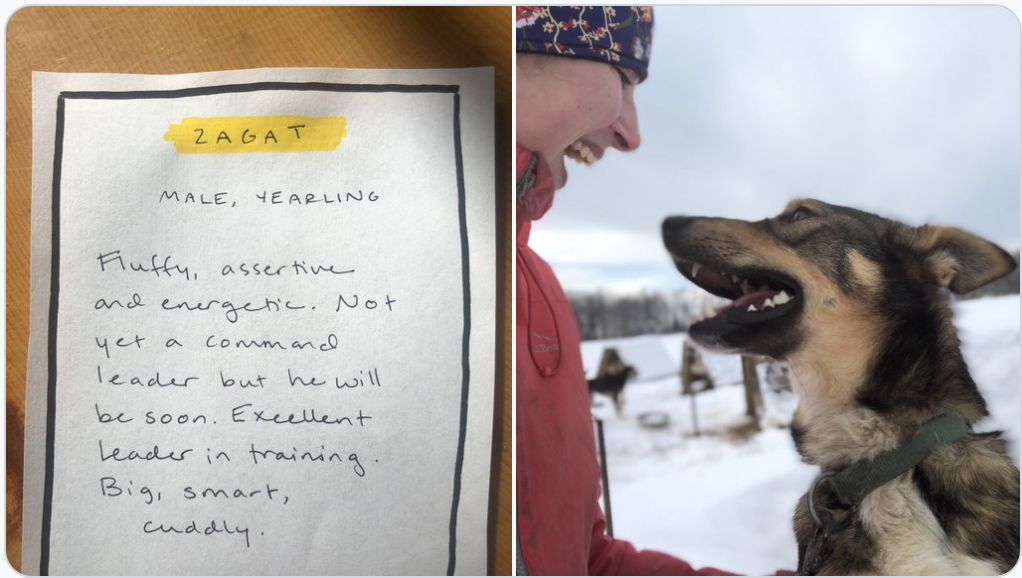 ZAGAT
MALE, YEARLING
Fluffy, assertive
and energetic. Not
yet a command
leader but he will
be soon. Excellent
leader in training.
Big, smart,
cuddly.